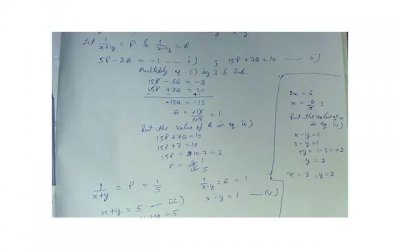 Let 1/x+y = P & 1/x-y = Q
5P - 2Q = -1 --- i) ; 15P + 7Q = 10 --- ii)
Multiply eq. (i) by 3 &
15P - 6Q = -3
15P + 7Q = 10
-13Q = -13
Q = -13/-13 = 1
Put the value of Q in eq. ii)
15P + 7Q = 10
15P + 7 = 10
15P = 10 - 7 = 3
P = 3/15 1/5
1/x+y = P = 1/5
1/x-y = Q = 1
x+y = 5 --- iii)
x-y = 1 --- iv)
2x = 6
x = 6/2 3
Put the value of x
in eq. (iv)
x-y = 1
3-y = 1
+y = 1-3 = +2
y = 2
x = 3, y = 2